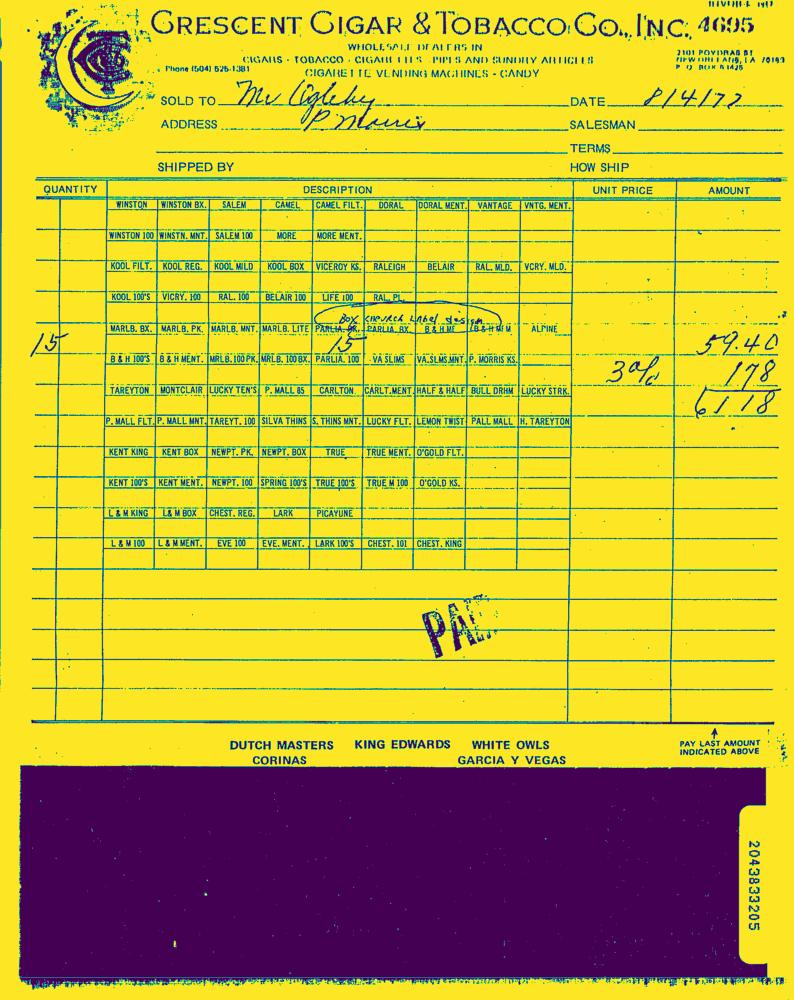 CRESCENT CIGAR & TOBACCO CO., INC. 4695
WHOLESALE DEALERS IN
CIGARS - TOBACCO - CIGARETTES - PIPES AND SUNDRY ARTICLES
CIGARETTE VENDING MACHINES - CANDY
Phone (504) 525-1381
2101 POYDRAS ST
NEW ORLEANS, LA 70183
P. O. BOX 51425
SOLD TO Mr DATE 8/4/77
ADDRESS P Morris SALESMAN
TERMS
SHIPPED BY HOW SHIP
QUANTITY DESCRIPTION UNIT PRICE AMOUNT
WINSTON WINSTON BX. SALEM CAMEL CAMEL FILT. DORAL DORAL MENT. VANTAGE VNTG. MENT.
WINSTON 100 WINSTN. MNT. SALEM 100 MORE MORE MENT.
KOOL FILT. KOOL REG. KOOL MILD KOOL BOX VICEROY KS. RALEIGH BELAIR RAL. MLD. VCRY. MLD.
KOOL 100'S VICRY. 100 RAL. 100 BELAIR 100 LIFE 100 RAL. PL.
Box church Label design
MARLB. BX. MARLB. PK. MARLB. MNT. MARLB. LITE PARLIA. PK. PARLIA. BX. B & H MF B & H MEM ALPINE
15 15 59.40
B & H 100'S B & H MENT. MRLB. 100 PK. MRLB. 100 BX. PARLIA. 100 VA SLIMS VA.SLMS.MNT. P. MORRIS KS.
3% 178
TAREYTON MONTCLAIR LUCKY TEN'S P. MALL 85 CARLTON CARLT.MENT. HALF & HALF BULL DRHM LUCKY STRK.
6118
P. MALL FLT. P. MALL MNT. TAREYT. 100 SILVA THINS S. THINS MNT. LUCKY FLT. LEMON TWIST PALL MALL H. TAREYTON
KENT KING KENT BOX NEWPT. PK. NEWPT. BOX TRUE TRUE MENT. O'GOLD FLT.
KENT 100'S KENT MENT. NEWPT. 100 SPRING 100'S TRUE 100'S TRUE M 100 O'GOLD KS.
L & M KING L& M BOX CHEST. REG. LARK PICAYUNE
L & M 100 L & M MENT. EVE 100 EVE. MENT. LARK 100'S CHEST. 101 CHEST. KING
PAID
DUTCH MASTERS KING EDWARDS WHITE OWLS
CORINAS GARCIA Y VEGAS
PAY LAST AMOUNT
INDICATED ABOVE
2043833205